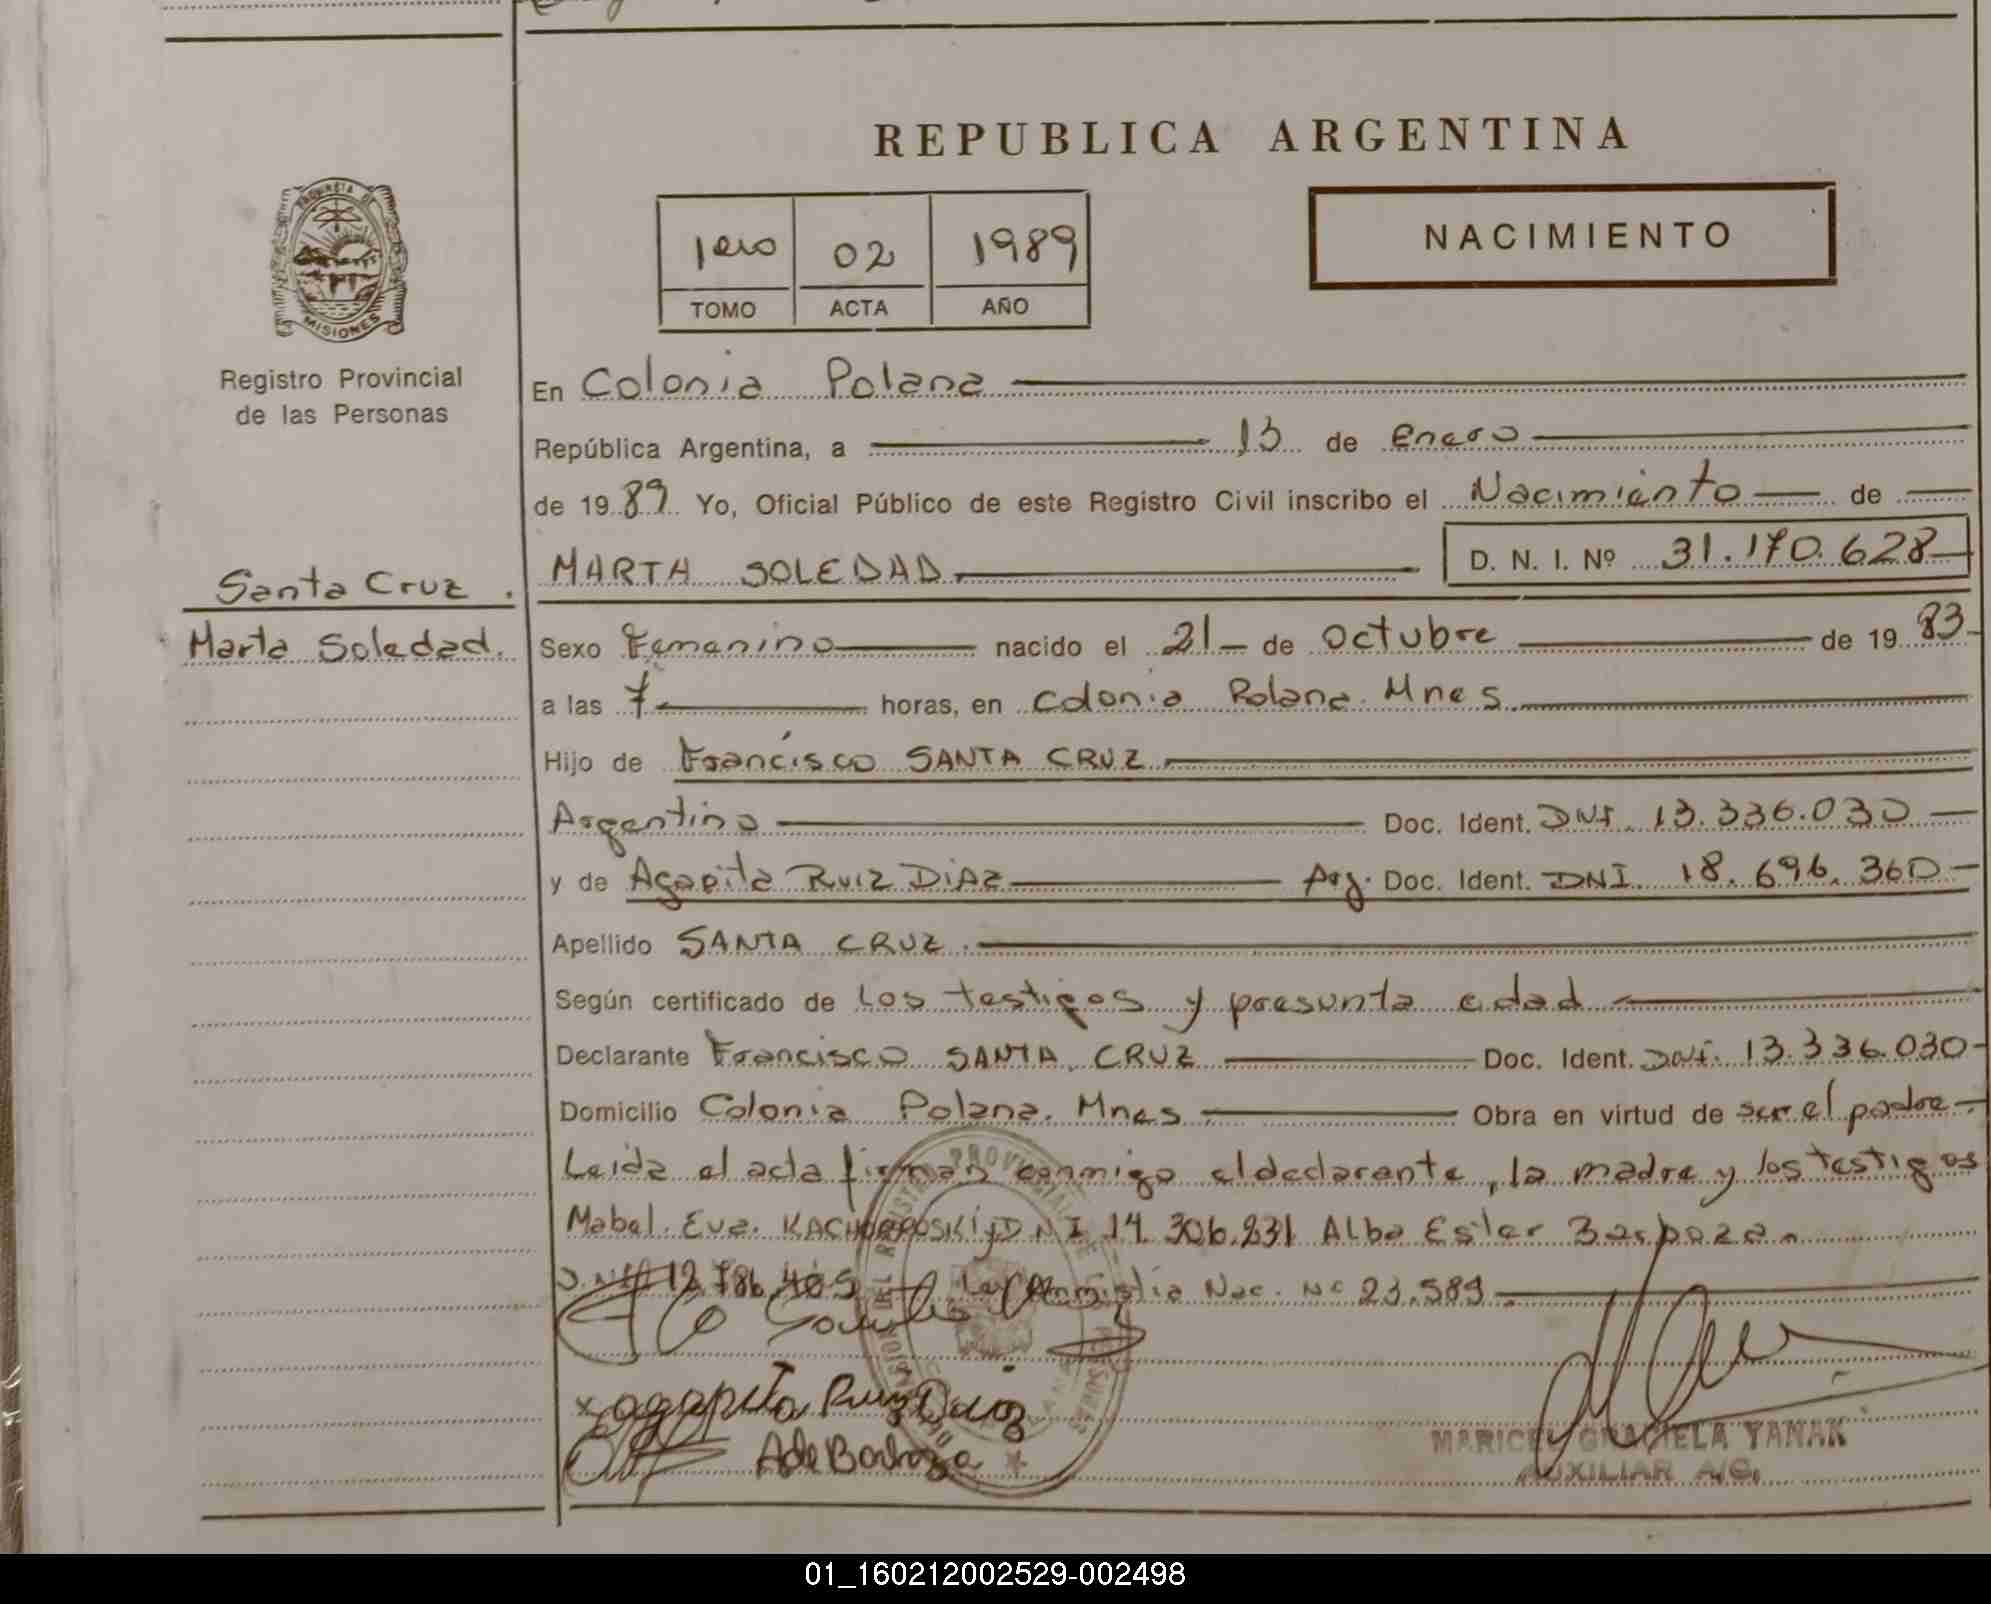 REPUBLICA ARGENTINA
PROVINCIA DE
MISIONES
Registro Provincial
de las Personas
1ero 02 1989
TOMO ACTA AÑO
NACIMIENTO
En Colonia Polana
República Argentina, a 13 de Enero
de 1989 Yo, Oficial Público de este Registro Civil inscribo el Nacimiento de
MARTA SOLEDAD D. N. I. Nº 31.170.628
Santa Cruz.
Marta Soledad.
Sexo Femenino nacido el 21 de Octubre de 1983
a las 7 horas, en Colonia Polana. Mnes.
Hijo de Francisco SANTA CRUZ
Argentino Doc. Ident. DNI. 13.336.030
y de Agapita RUIZ DIAZ Arg. Doc. Ident. DNI. 18.696.360
Apellido SANTA CRUZ.
Según certificado de los testigos y presunta edad
Declarante Francisco SANTA CRUZ Doc. Ident. DNI. 13.336.030
Domicilio Colonia Polana. Mnes Obra en virtud de ser el padre
Leida el acta firman conmigo el declarante, la madre y los testigos
Mabel. Eva. DNI 14.306.231 Alba Ester
12.786. Ley Amnistia Nac. Nº 23.589
agapita Ruiz Diaz
A de Barboza
MARICEL GRACIELA YANAK
AUXILIAR A/C.
01_160212002529-002498